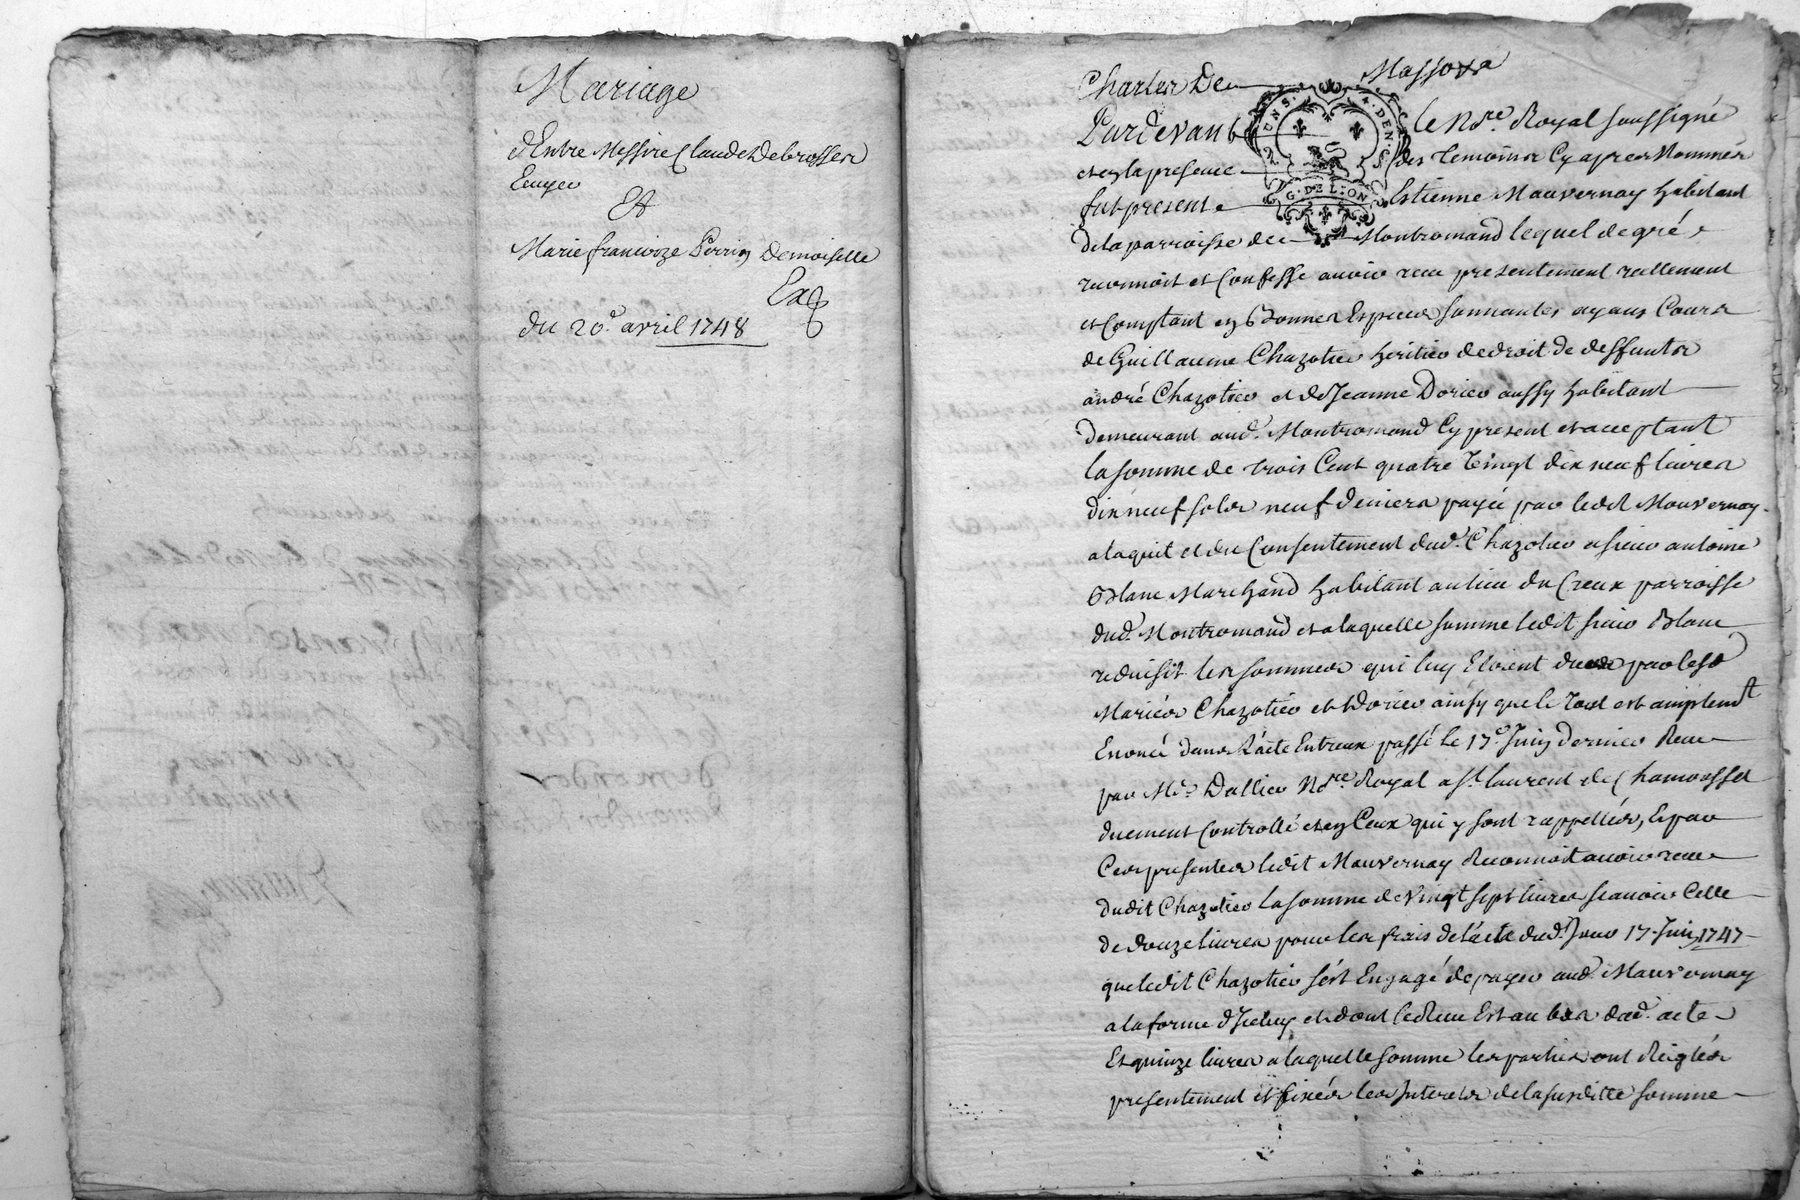 Mariage
d'Entre Messire Claude Debrosser
Ecuyer
Et
Marie francoize Perrin Demoiselle
Ex
du 20e avril 1748
Charles De Masso
UN S. 4. DEN. S.
G. DE LION
Pardevant le Nore. Royal soussigné
et en la presence des temoins Cy apres Nommés
fut present Estienne Mauvernay habitant
de la parroisse de Montromand lequel de gré
reconnoit et Confesse avoir receu presentement reellement
et Comptant en bonnes Especes sonnantes ayans Cours
de Guillaume Chazotier heritier de droit de deffunts
andré Chazotier et de Jeanne Dorier aussy habitant
demeurant aud. Montromand Cy present et acceptant
la somme de trois Cent quatre Vingt dix neuf livres
dix neuf sols neuf deniers payée par ledit Mauvernay
a laquit et du Consentement dud. Chazotier a sieur antoine
Blanc Marchand habitant au lieu du Creux parroisse
dud. Montromand et a laquelle somme ledit sieur Blanc
reduisit les sommes qui luy Etoient dues par lesd
Mariés Chazotier et Dorier ainsy que le tout est amplemt
Enoncé dans l'acte Entreux passé le 17e Juin dernier Receu
par Me. Dallier Nore. Royal a St. laurent de Chamousset
duement Controllé et en Ceux qui y sont rappellés, Et par
Ces presentes ledit Mauvernay Reconnoit avoir receu
dudit Chazotier la somme de Vingt sept livres scavoir Celle
de douze livres pour les frais de l'acte dud. Jour 17. Juin 1747
que ledit Chazotier s'est Engagé de payer aud. Mauvernay
a la forme d'Icelluy et dont le Receu Est au bas dud. acte
Et quinze livres a laquelle somme les parties ont Reiglés
presentement et fixés les Interets de la susditte somme